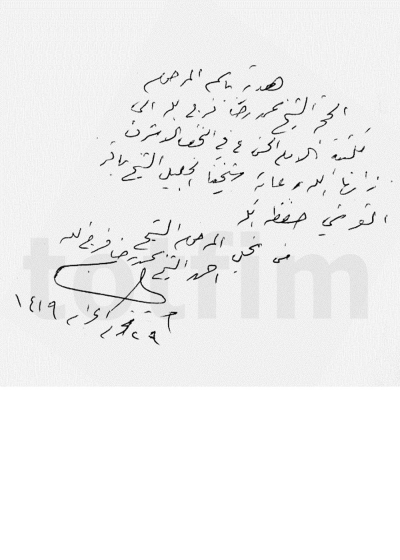 هدية باسم المرحوم
الحجة الشيخ محمد رضا فرج الله الى
مكتبة الامام الحسن ع في النجف الاشرف
زادها الله رعاية شيخنا الجليل الشيخ باقر
القرشي حفظه الله
من نجل المرحوم الشيخ محمد رضا فرج الله
احمد الشيخ
٢٩ محرم الحرام ١٤١٩
totfim